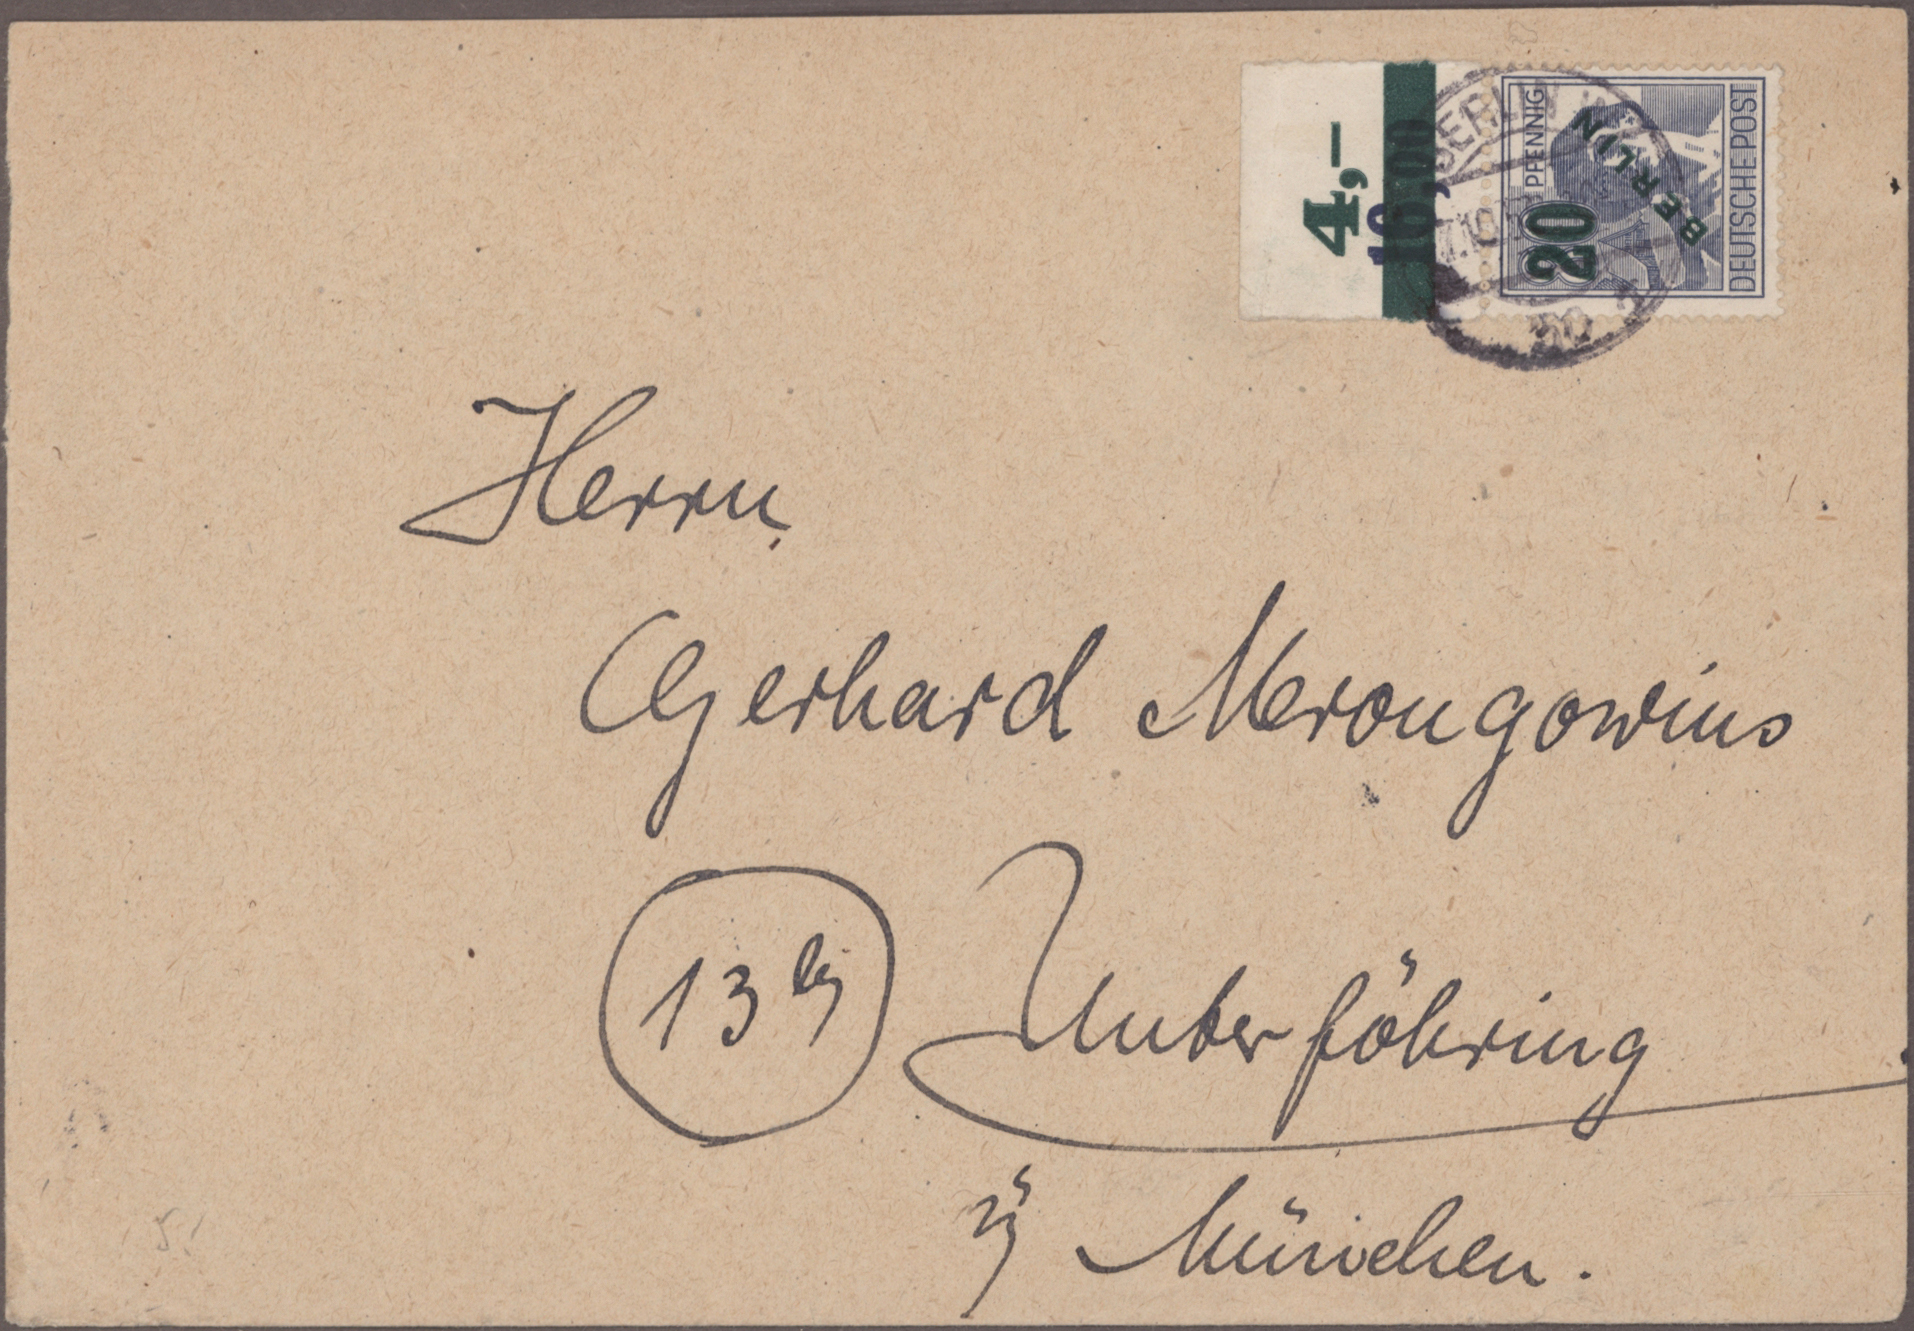 4,-
16,00
BERLIN
PFENNIG
20
BERLIN
DEUTSCHE POST
Herrn
Gerhard Merongowius
13b Unterföhring
b/ München.